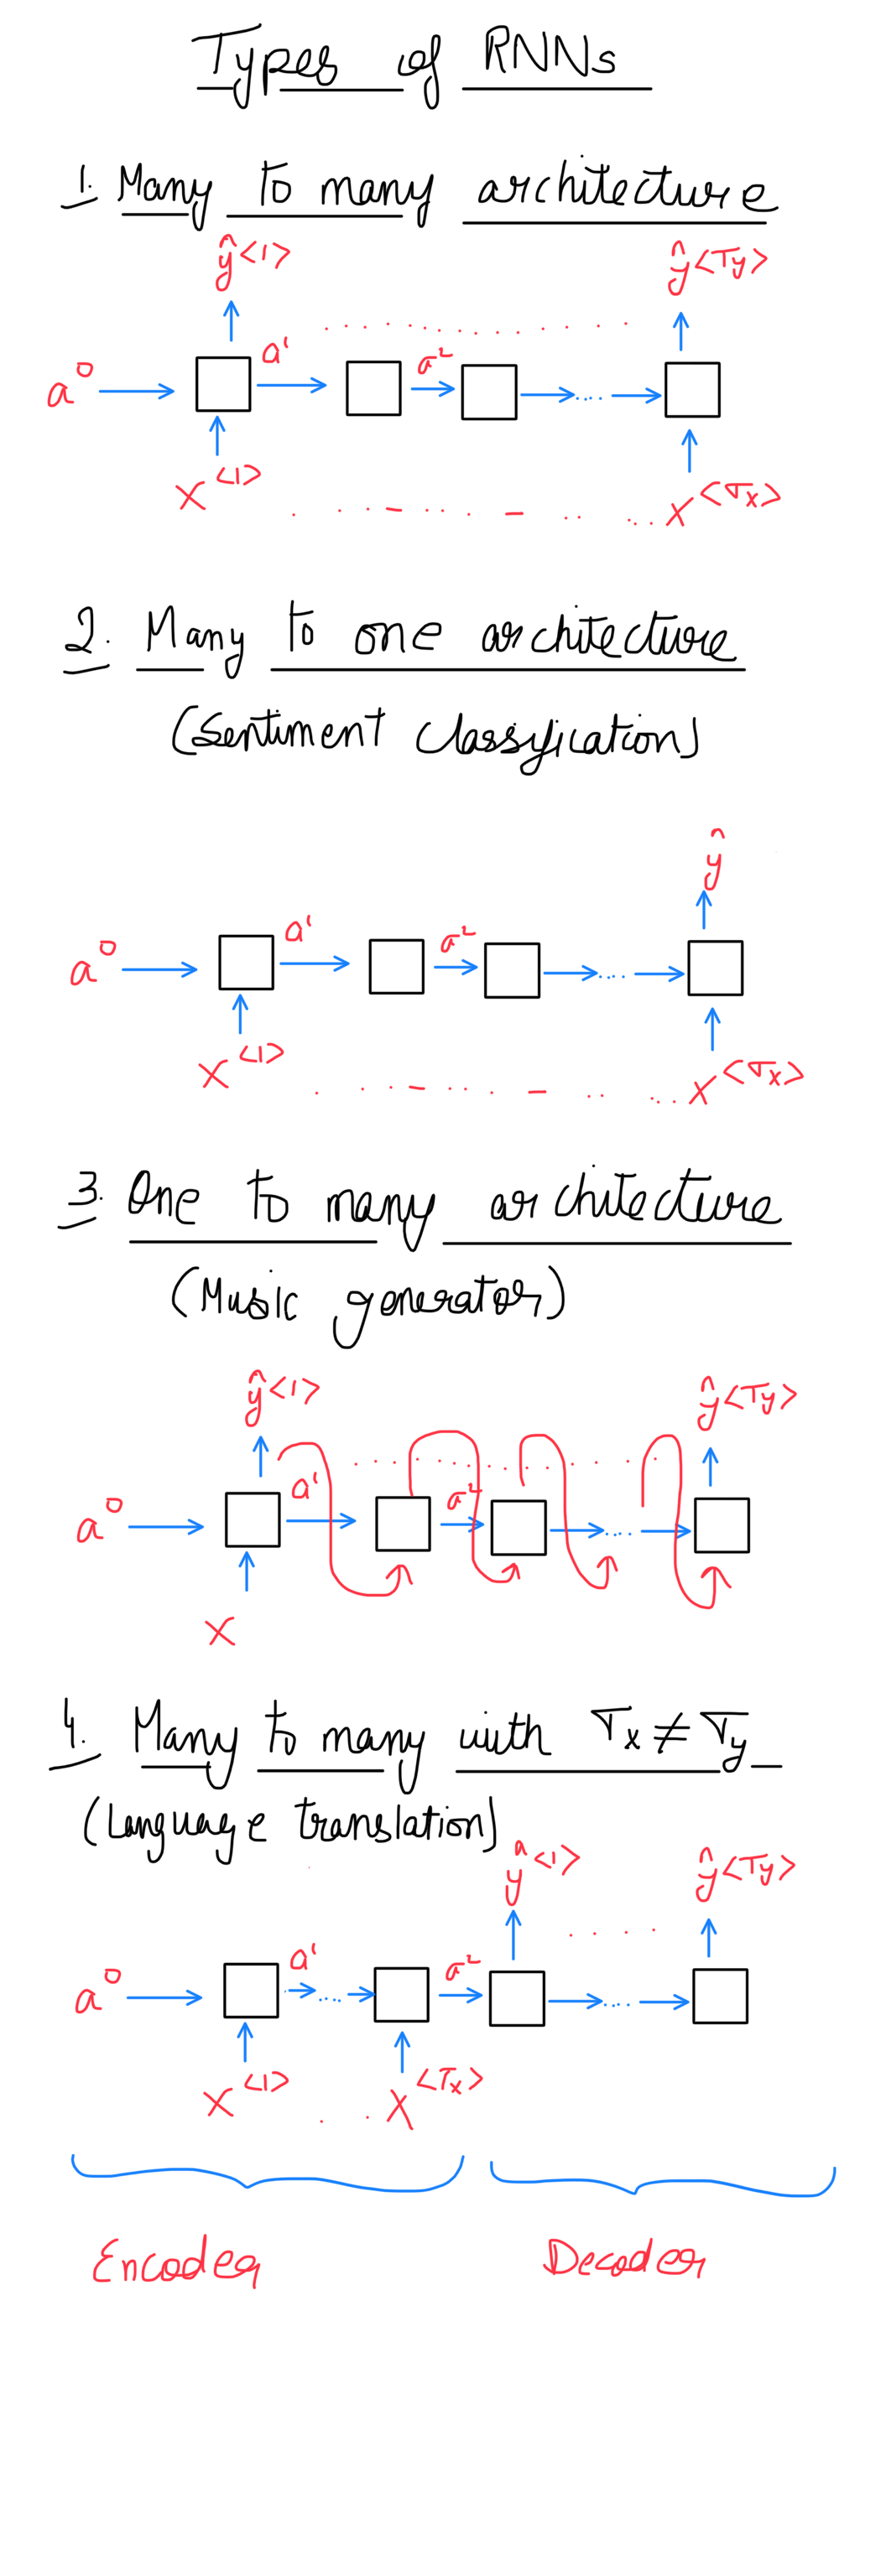 Types of RNNs
1. Many to many architecture
ŷ<1> ŷ<Ty>
a⁰ a¹ a²
x<1> x<Tx>
2. Many to one architecture
(Sentiment classification)
ŷ
a⁰ a¹ a²
x<1> x<Tx>
3. One to many architecture
(Music generator)
ŷ<1> ŷ<Ty>
a⁰ a¹ a²
x
4. Many to many with Tx ≠ Ty
(Language translation)
ŷ<1> ŷ<Ty>
a⁰ a¹ a²
x<1> x<Tx>
Encoder Decoder